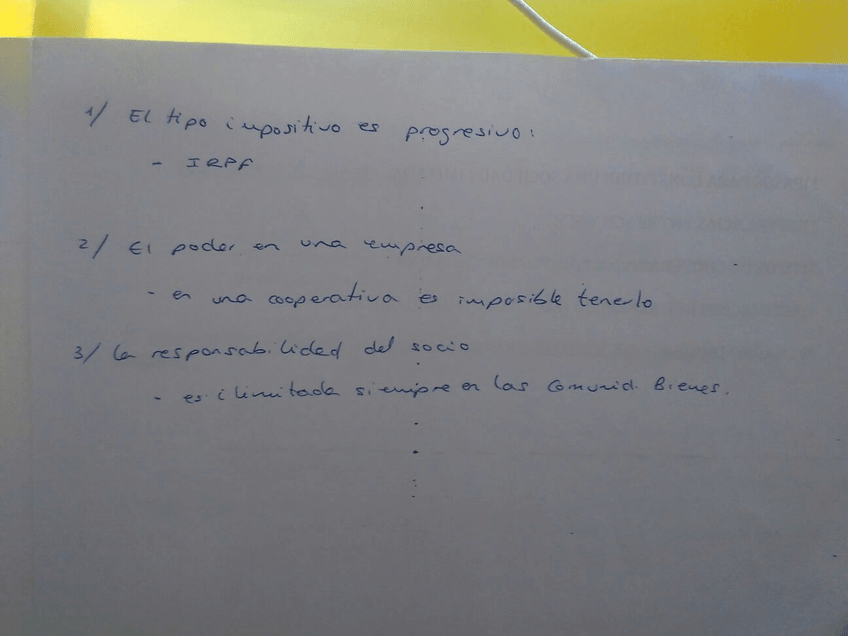 1/ El tipo impositivo es progresivo:
- IRPF
2/ El poder en una empresa
- en una cooperativa es imposible tenerlo
3/ la responsabilidad del socio
- es ilimitada siempre en las Comunid. Bienes.